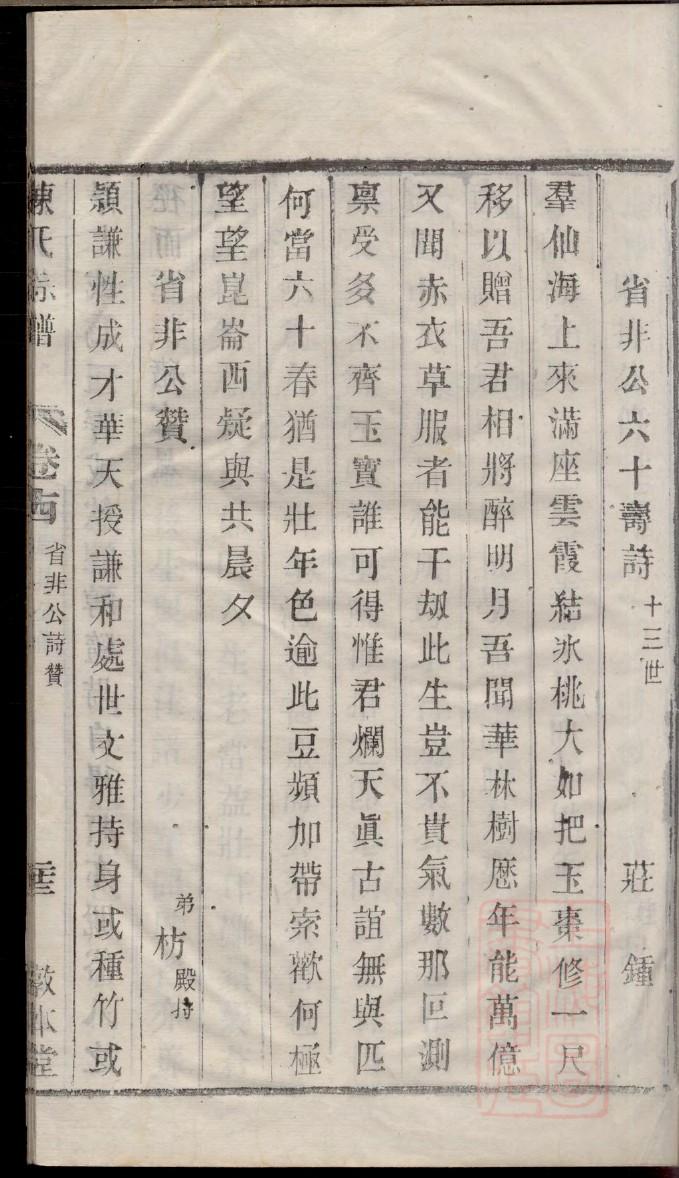 省非公六十壽詩 十三世 莊鍾
羣仙海上來滿座雲霞結氷桃大如把玉棗修一尺
移以贈吾君相將醉明月吾聞華林樹歷年能萬億
又聞赤衣草服者能千刼此生豈不貴氣數那叵測
禀受多不齊玉寶誰可得惟君爛天眞古誼無與匹
何當六十春猶是壯年色逾此豆頻加帶索歡何極
望望崑崙西疑與共晨夕
省非公贊 弟枋殿持
穎謙性成才華天授謙和處世文雅持身或種竹或
陳氏宗譜 卷 省非公詩贊 敬本堂